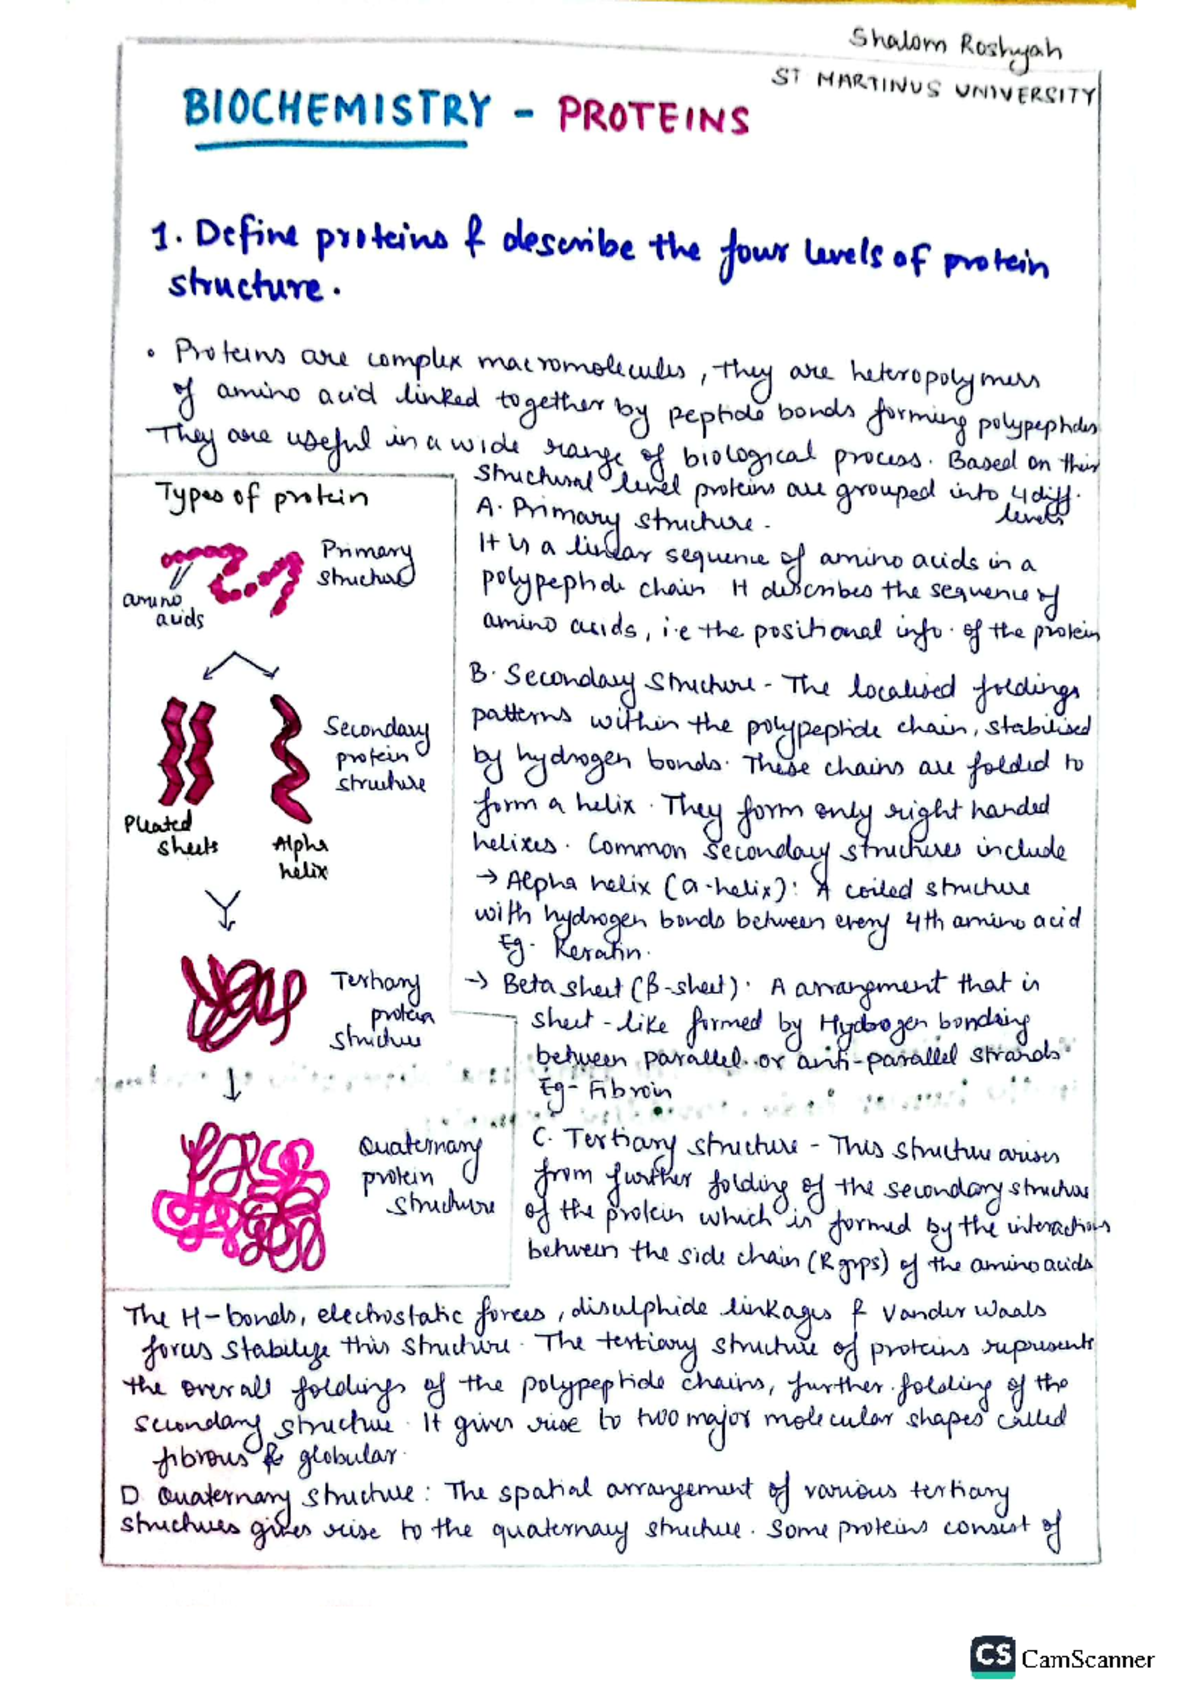 Shalom Roshyah
ST MARTINUS UNIVERSITY
BIOCHEMISTRY - PROTEINS
1. Define proteins & describe the four levels of protein
structure.
• Proteins are complex macromolecules, they are heteropolymers
of amino acid linked together by peptide bonds forming polypeptides
They are useful in a wide range of biological process. Based on their
structural level proteins are grouped into 4 diff.
levels
Types of protein
Primary
structure
amino
acids
Secondary
protein
structure
Pleated
sheets
Alpha
helix
Tertiary
protein
structure
Quaternary
protein
structure
A. Primary structure.
It is a linear sequence of amino acids in a
polypeptide chain It describes the sequence of
amino acids, i.e the positional info. of the protein
B. Secondary structure - The localised foldings
patterns within the polypeptide chain, stabilised
by hydrogen bonds. These chains are folded to
form a helix. They form only right handed
helixes. Common secondary structures include
→ Alpha helix (α-helix): A coiled structure
with hydrogen bonds between every 4th amino acid
Eg. Keratin.
→ Beta sheet (β-sheet). A arrangement that is
sheet-like formed by Hydrogen bonding
between parallel or anti-parallel strands
Eg- Fibroin
C. Tertiary structure - This structure arises
from further folding of the secondary structure
of the protein which is formed by the interactions
between the side chain (R grps) of the amino acids
The H-bonds, electrostatic forces, disulphide linkages & Vander Waals
forces stabilize this structure. The tertiary structure of proteins represents
the overall foldings of the polypeptide chains, further folding of the
secondary structure. It gives rise to two major molecular shapes called
fibrous & globular.
D. Quaternary structure: The spatial arrangement of various tertiary
structures gives rise to the quaternary structure. Some proteins consist of
CS CamScanner